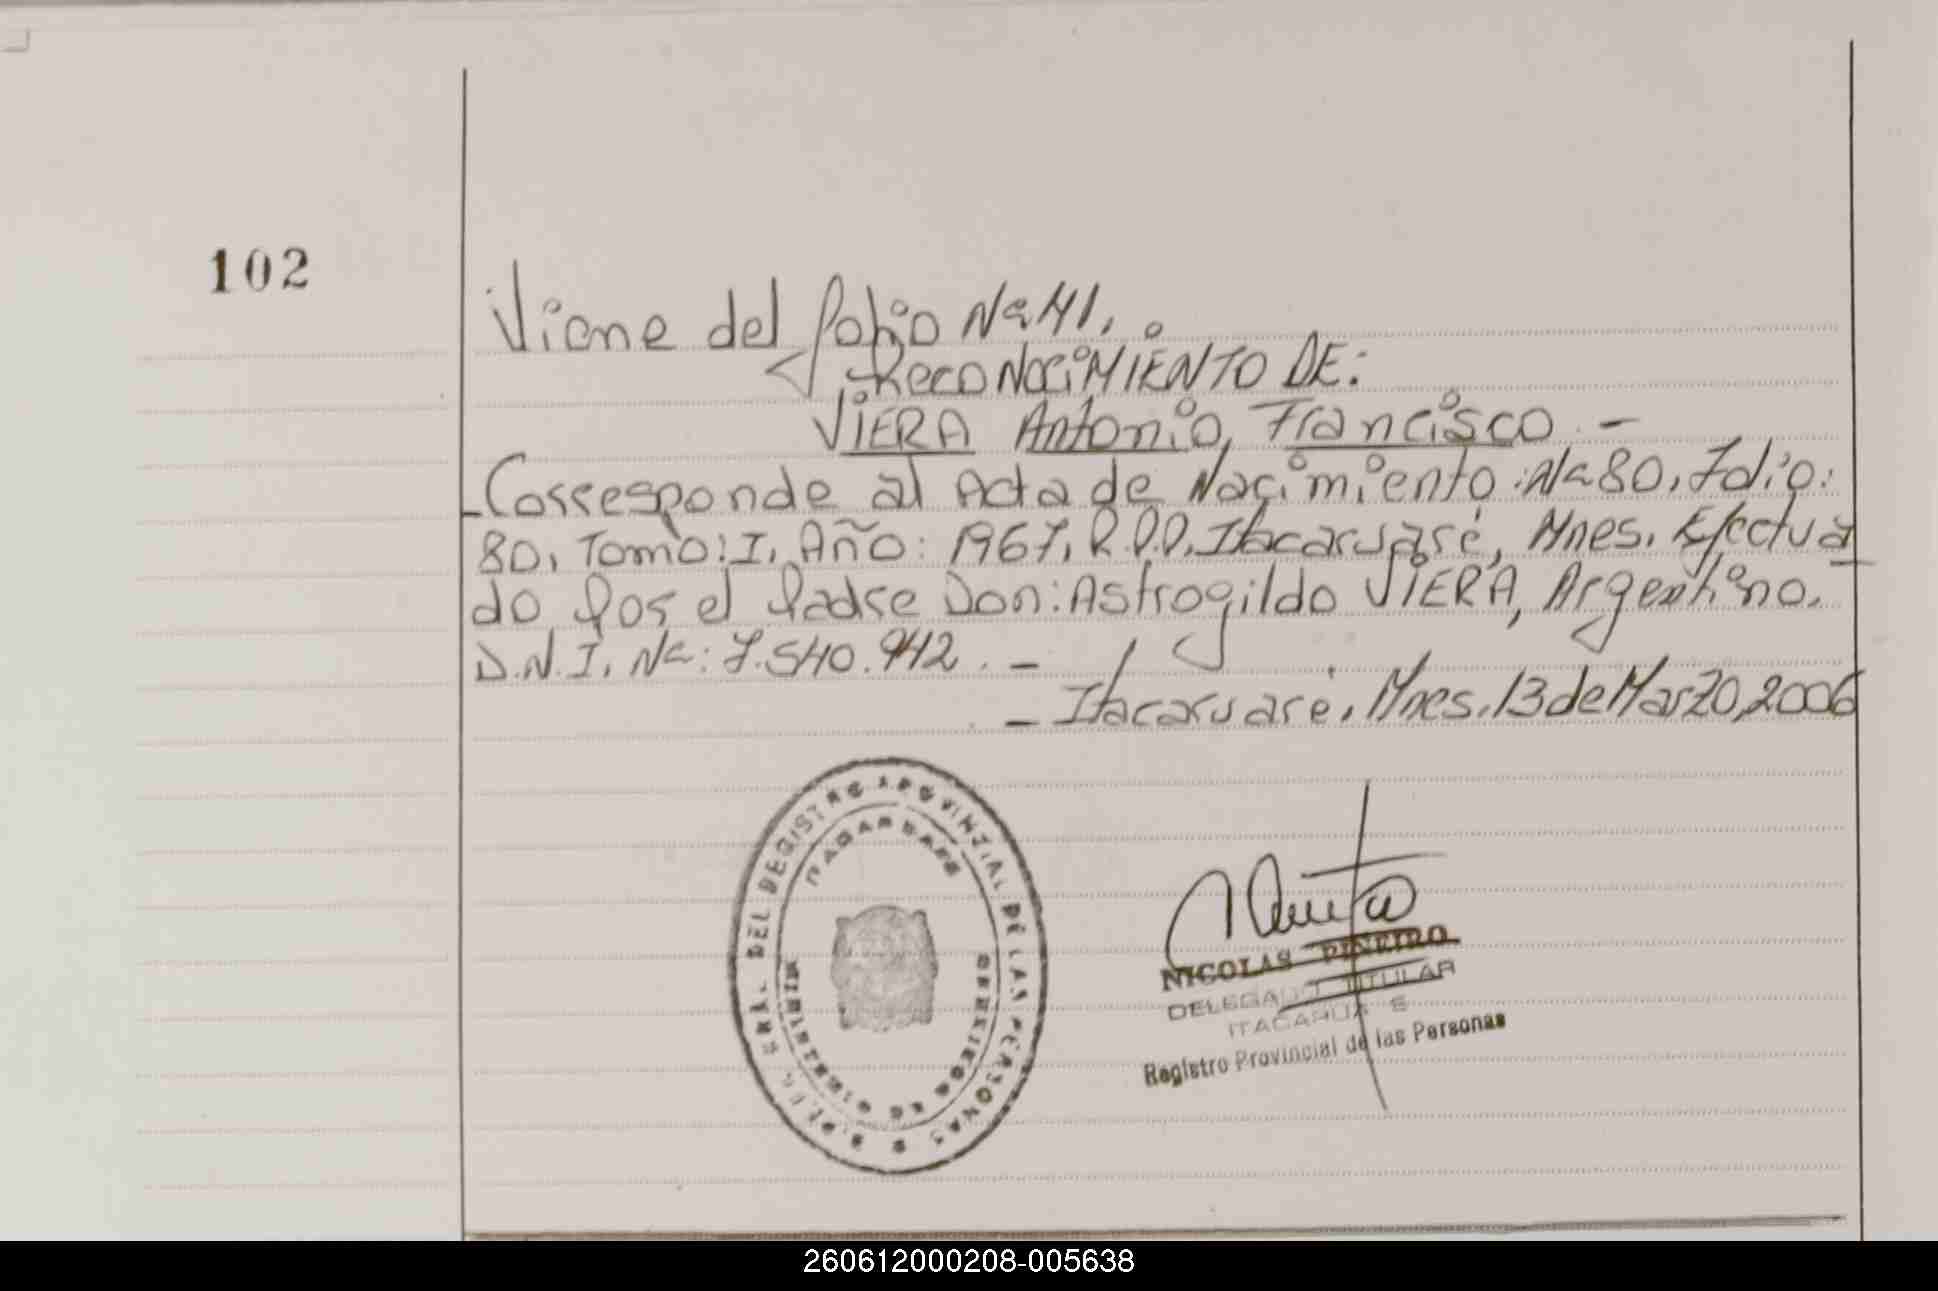 102
Viene del folio Nº 41.
RECONOCIMIENTO DE:
VIERA Antonio, Francisco.-
-Corresponde al Acta de Nacimiento: Nº 80, Folio:
80, Tomo: I, Año: 1967, R.P.P. Itacaruaré, Mnes. Efectua
do por el Padre Don: Astrogildo VIERA, Argentino.
D.N.I. Nº: 7.540.942.-
-Itacaruaré, Mnes. 13 de Marzo, 2006
GRAL. DEL REGISTRO PROVINCIAL DE LAS PERSONAS
ITACARUARE
MISIONES
NICOLAS PINEIRO
DELEGADO TITULAR
ITACARUA E
Registro Provincial de las Personas
260612000208-005638